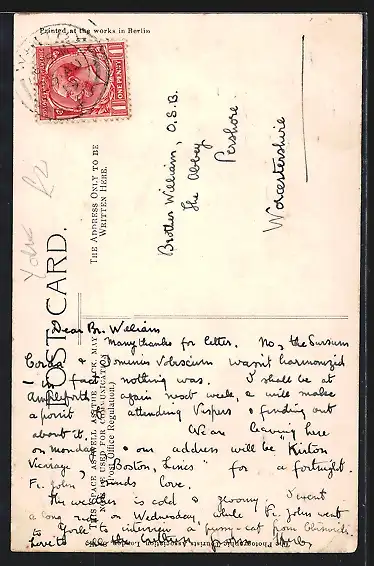 Printed at the works in Berlin
ONE PENNY
POST CARD.
THE ADDRESS ONLY TO BE
WRITTEN HERE.
THIS SPACE AS WELL AS THE BACK, MAY
BE USED FOR COMMUNICATION
(Post Office Regulation.)
Brother William, O.S.B.
The Abbey
Pershore
Worcestershire
York
Dear Br. William
Many thanks for letter. No, the Sursum
Corda & Dominus Vobiscum wasn't harmonized
in fact nothing was. I shall be at
Ampleforth again next week, & will make
a point attending Vespers & finding out
about it. We are leaving here
on Monday & our address will be Kirton
Vicarage, Boston, Lincs for a fortnight.
Fr. John sends love.
The weather is cold & gloomy. I went
a long on Wednesday while Fr. John went
to York to interview a pussy-cat from
here to
The Photographic Tourists' Association